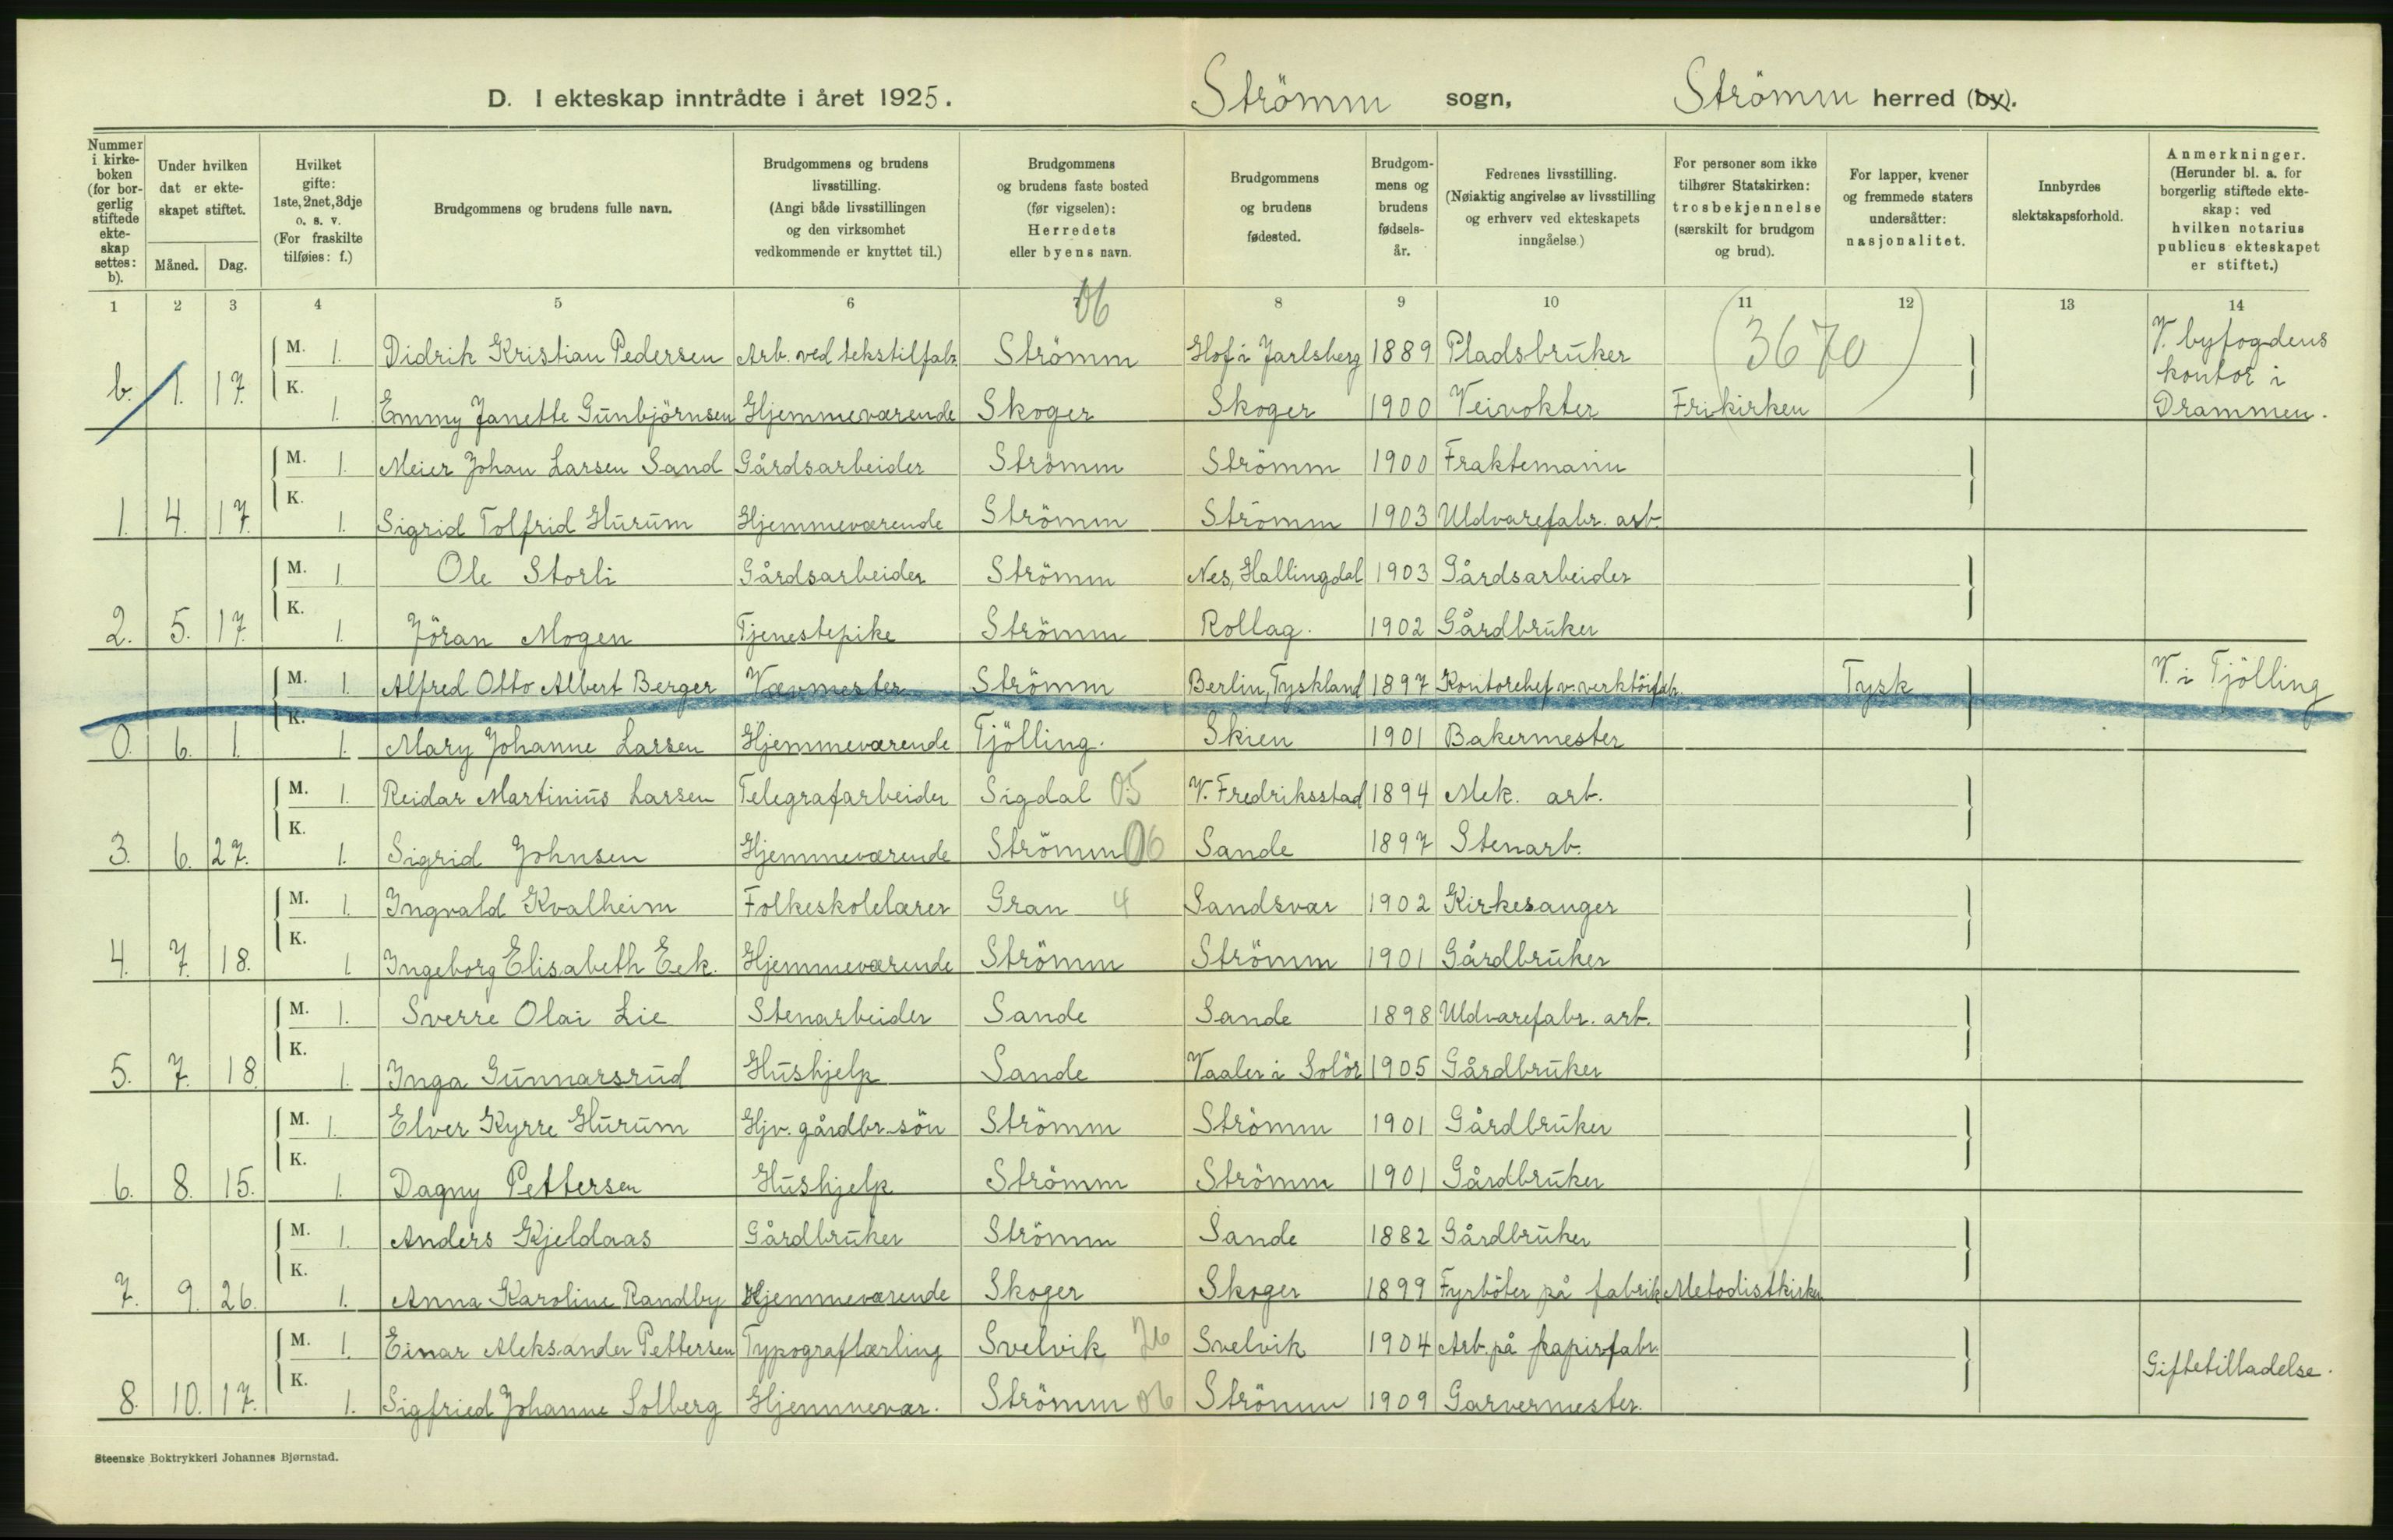 D. I ekteskap inntrådte i året 1925. Strömm sogn, Strömm herred (by).
Nummer i kirke-boken (for bor-gerlig stiftede ekte-skap settes: b).
Under hvilken dat er ekte-skapet stiftet.
Måned. Dag.
Hvilket gifte: 1ste, 2net, 3dje o. s. v. (For fraskilte tilføies: f.)
Brudgommens og brudens fulle navn.
Brudgommens og brudens livsstilling. (Angi både livsstillingen og den virksomhet vedkommende er knyttet til.)
Brudgommens og brudens faste bosted (før vigselen): Herredets eller byens navn.
Brudgommens og brudens fødested.
Brudgom-mens og brudens fødsels-år.
Fedrenes livsstilling. (Nøiaktig angivelse av livsstilling og erhverv ved ekteskapets inngåelse.)
For personer som ikke tilhører Statskirken: trosbekjennelse (særskilt for brudgom og brud).
For lapper, kvener og fremmede staters undersåtter: nasjonalitet.
Innbyrdes slektskapsforhold.
Anmerkninger. (Herunder bl. a. for borgerlig stiftede ekte-skap: ved hvilken notarius publicus ekteskapet er stiftet.)
1 2 3 4 5 6 8 9 10 11 12 13 14
06
M. 1. Didrik Kristian Pedersen Arb. ved tekstilfabr. Strömm Hof i Jarlsberg 1889 Pladsbruker (3670) V. byfogdens kontor i Drammen.
b. 1. 17. K. 1. Emmy Janette Gunbjörnsen Hjemmeværende Skoger Skoger 1900 Veivokter Frikirken
M. 1. Meier Johan Larsen Sand Gårdsarbeider Strömm Strömm 1900 Fraktemann
1. 4. 17. K. 1. Sigrid Tolfrid Hurum Hjemmeværende Strömm Strömm 1903 Uldvarefabr. arb.
M. 1 Ole Storli Gårdsarbeider Strömm Nes, Hallingdal 1903 Gårdsarbeider
2. 5. 17. K. 1. Jöran Mogen Tjenestepike Strömm Rollag. 1902 Gårdbruker
M. 1. Alfred Otto Albert Berger Vævmester Strömm Berlin, Tyskland 1897 Kontorchef v. verktöifabr. Tysk V. i Tjölling
0. 6. 1. K. 1. Mary Johanne Larsen Hjemmeværende Tjölling. Skien 1901 Bakermester
M. 1. Reidar Martinius Larsen Telegrafarbeider Sigdal 05 V. Fredriksstad 1894 Mek. arb.
3. 6. 27. K. 1. Sigrid Johnsen Hjemmeværende Strömm 06 Sande 1897 Stenarb.
M. 1. Ingvald Kvalheim Folkeskolelærer Gran 4 Sandsvær 1902 Kirkesanger
4. 7. 18. K. 1 Ingeborg Elisabeth Eek. Hjemmeværende Strömm Strömm 1901 Gårdbruker
M. 1. Sverre Olai Lie Stenarbeider Sande Sande 1898 Uldvarefabr. arb.
5. 7. 18. K. 1. Inga Gunnarsrud Hushjelp Sande Vaaler i Solör 1905 Gårdbruker
M. 1. Elver Kyrre Hurum Hjv. gårdbr. sön Strömm Strömm 1901 Gårdbruker
6. 8. 15. K. 1. Dagny Pettersen Hushjelp Strömm Strömm 1901 Gårdbruker
M. 1. Anders Kjeldaas Gårdbruker Strömm Sande 1882 Gårdbruker
7. 9. 26. K. 1. Anna Karoline Randby Hjemmeværende Skoger Skoger 1899 Fyrböter på fabrik Metodistkirken
M. 1. Einar Aleksander Pettersen Typograflærling Svelvik 26 Svelvik 1904 Arb. på papirfabr. Giftetilladelse.
8. 10. 17. K. 1. Sigfried Johanne Solberg Hjemmevær. Strömm 06 Strömm 1909 Garvermester.
Steenske Boktrykkeri Johannes Bjørnstad.